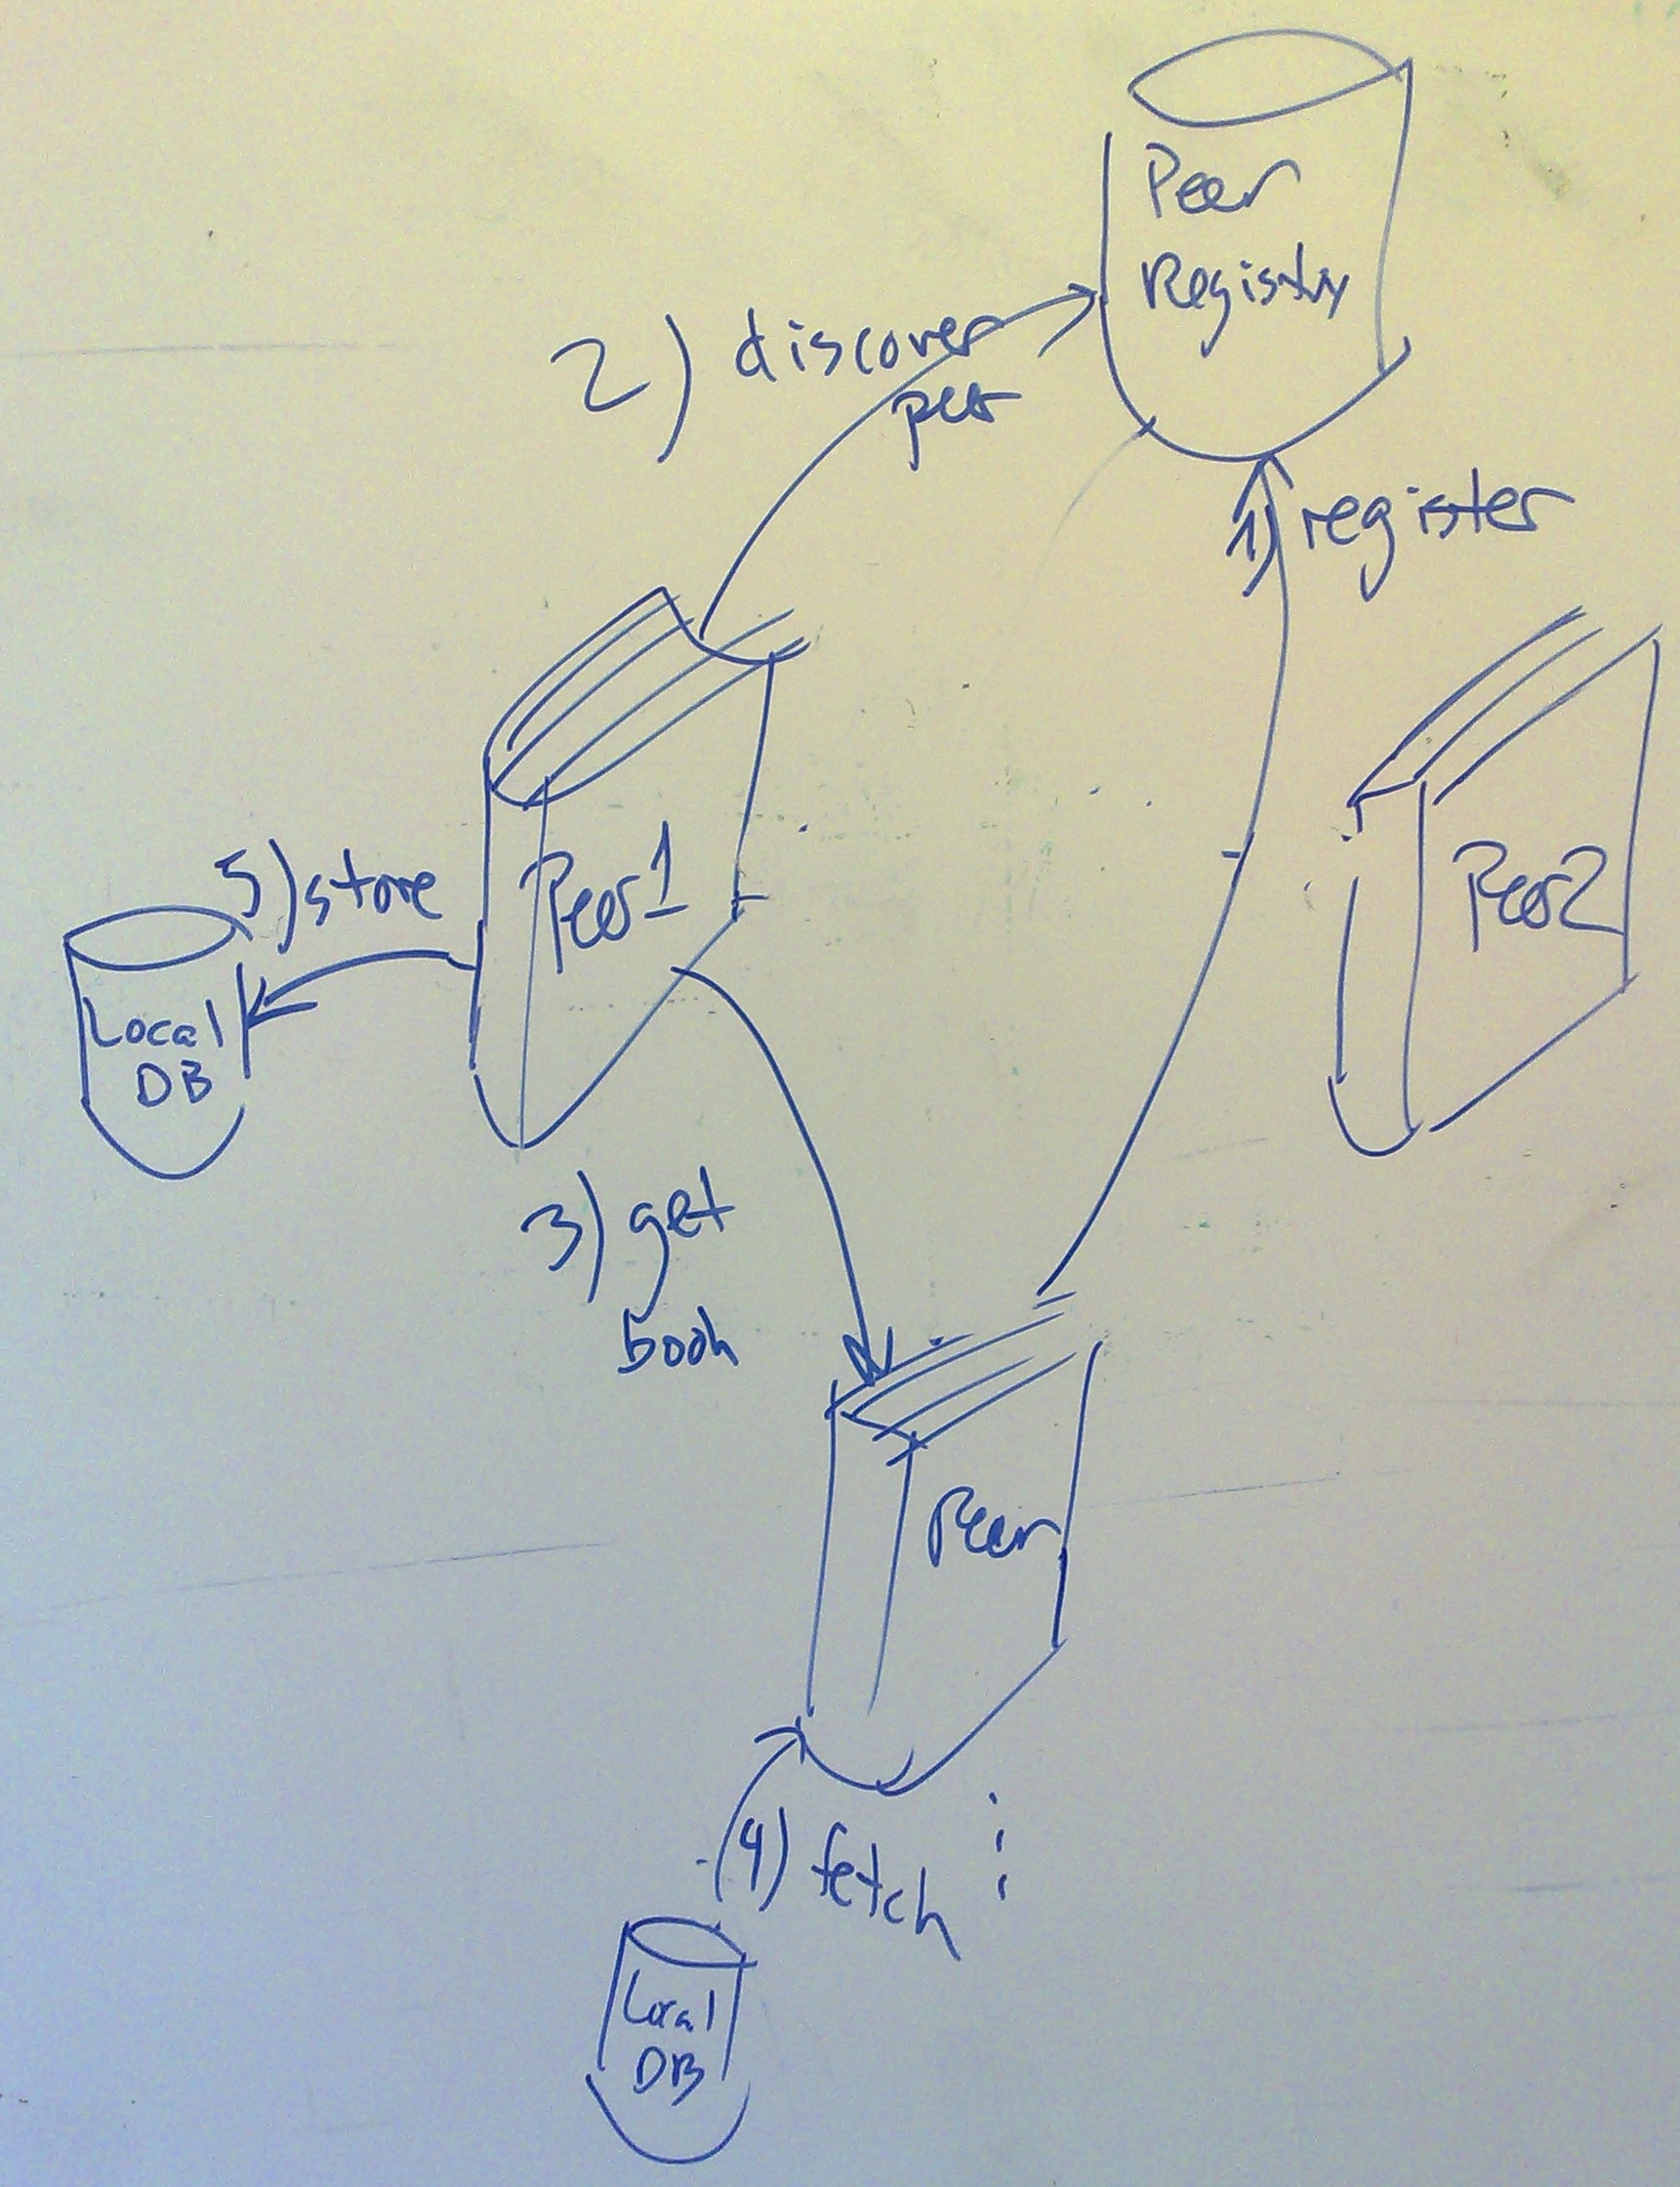 Peer
Registry
2) discover
peer
1) register
Peer1
Peer2
5) store
Local
DB
3) get
book
Peer
4) fetch
Local
DB